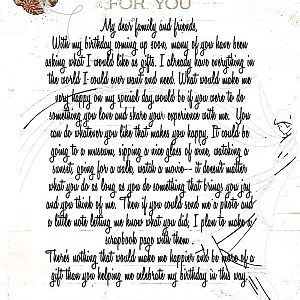 FOR YOU
My dear family and friends,
With my birthday coming up soon, many of you have been
asking what I would like as gifts. I already have everything in
the world I could ever want and need. What would make me
very happy on my special day would be if you were to do
something you love and share your experience with me. You
can do whatever you like that makes you happy. It could be
going to a museum, sipping a nice glass of wine, watching a
sunset, going for a walk, watch a movie-- it doesn't matter
what you do as long as you do something that brings you joy
and you think of me. Then if you could send me a photo and
a little note letting me know what you did, I plan to make a
scrapbook page with them .
Theres nothing that would make me happier and be more of a
gift than you helping me celebrate my birthday in this way.